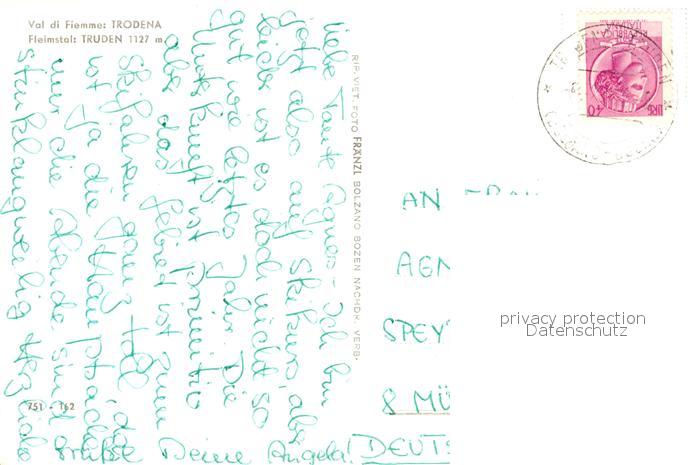 Val di Fiemme: TRODENA
Fleimstal: TRUDEN 1127 m.
Liebe Tante Agnes - Ich bin
jetzt also auf Skikurs, aber
leider ist es doch nicht so
gut wie letztes Jahr. Die
Unterkunft ist primitiv
aber das Gebiet ist zum
Skifahren ganz toll
ist ja die Hauptsache
nur die Abende sind
stinklangweilig Herzliche
Grüße Deine Angela!
751 - 162
RIP. VIET. FOTO FRÄNZL BOLZANO BOZEN NACHDR. VERB.
REPUBBLICA
ITALIANA
LIRE 40
AN
AGN
SPEY
8 MÜ
DEUTS
privacy protection
Datenschutz